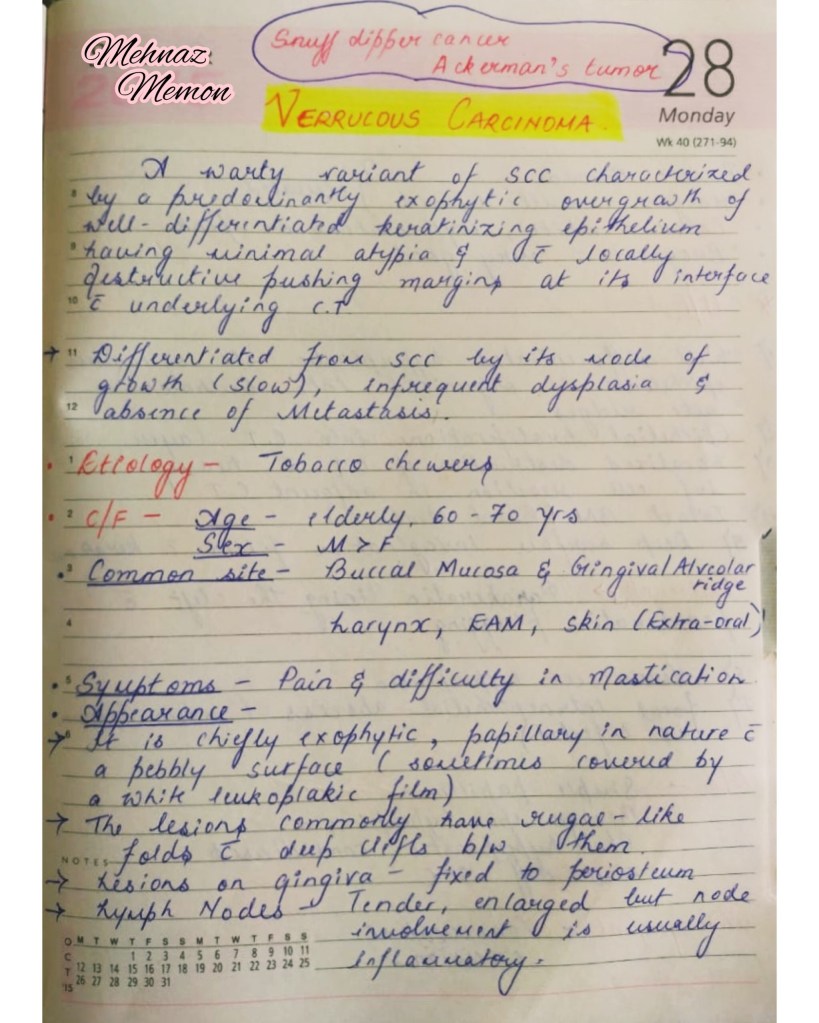 Mehnaz
Memon
Snuff dipper cancer
Ackerman's tumor
28
Monday
Wk 40 (271-94)
VERRUCOUS CARCINOMA
A warty variant of SCC characterized
8 by a predominantly exophytic overgrowth of
well-differentiated keratinizing epithelium
9 having minimal atypia & c̄ locally
destructive pushing margins at its interface
10 c̄ underlying C.T
→ 11 Differentiated from SCC by its mode of
growth (slow), infrequent dysplasia &
12 absence of Metastasis.
• 1 Etiology - Tobacco chewers
• 2 C/F - Age - elderly, 60 - 70 yrs
Sex - M > F
• 3 Common site - Buccal Mucosa & Gingival/Alveolar
ridge
4 Larynx, EAM, Skin (Extra-oral)
• 5 Symptoms - Pain & difficulty in Mastication
• Appearance -
→ 6 It is chiefly exophytic, papillary in nature c̄
a pebbly surface (sometimes covered by
a white leukoplakic film)
→ The lesions commonly have rugae-like
NOTES folds c̄ deep clefts b/w them.
→ Lesions on gingiva - fixed to periosteum
→ Lymph Nodes - Tender, enlarged but node
involvement is usually
inflammatory.
O C T '15
M T W T F S S M T W T F S S
1 2 3 4 5 6 7 8 9 10 11
12 13 14 15 16 17 18 19 20 21 22 23 24 25
26 27 28 29 30 31